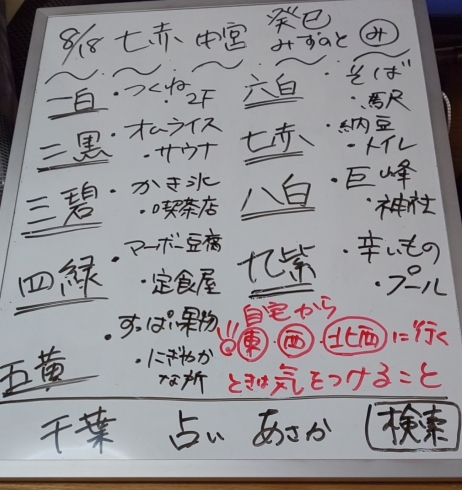 8/18 七赤 中宮 癸巳
みずのと み
一白 ・つくね
・2F
二黒 ・オムライス
・サウナ
三碧 ・かき氷
・喫茶店
四緑 ・マーボー豆腐
・定食屋
五黄 ・すっぱい果物
・にぎやか
な所
六白 ・そば
・駅
七赤 ・納豆
・トイレ
八白 ・巨峰
・神社
九紫 ・辛いもの
・プール
自宅から
!!東・西・北西に行く
ときは気をつけること
千葉 占い あさか 検索